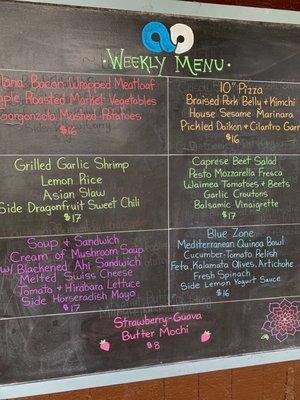 ·Weekly Menu·
Bacon Wrapped Meatloaf
Roasted Market Vegetables
Gorgonzola Mashed Potatoes
$16
10" Pizza
Braised Pork Belly + Kimchi
House Sesame Marinara
Pickled Daikon + Cilantro Garnish
$16
Grilled Garlic Shrimp
Lemon Rice
Asian Slaw
Side Dragonfruit Sweet Chili
$17
Caprese Beet Salad
Pesto Mozzarella Fresca
Waimea Tomatoes + Beets
Garlic Croutons
Balsamic Vinaigrette
$17
Soup + Sandwich
Cream of Mushroom Soup
w/ Blackened Ahi Sandwich
Melted Swiss Cheese
Tomato + Hirabara Lettuce
Side Horseradish Mayo
$17
Blue Zone
Mediterranean Quinoa Bowl
Cucumber-Tomato Relish
Feta, Kalamata Olives, Artichoke
Fresh Spinach
Side Lemon Yogurt Sauce
$16
Strawberry-Guava
Butter Mochi
$8